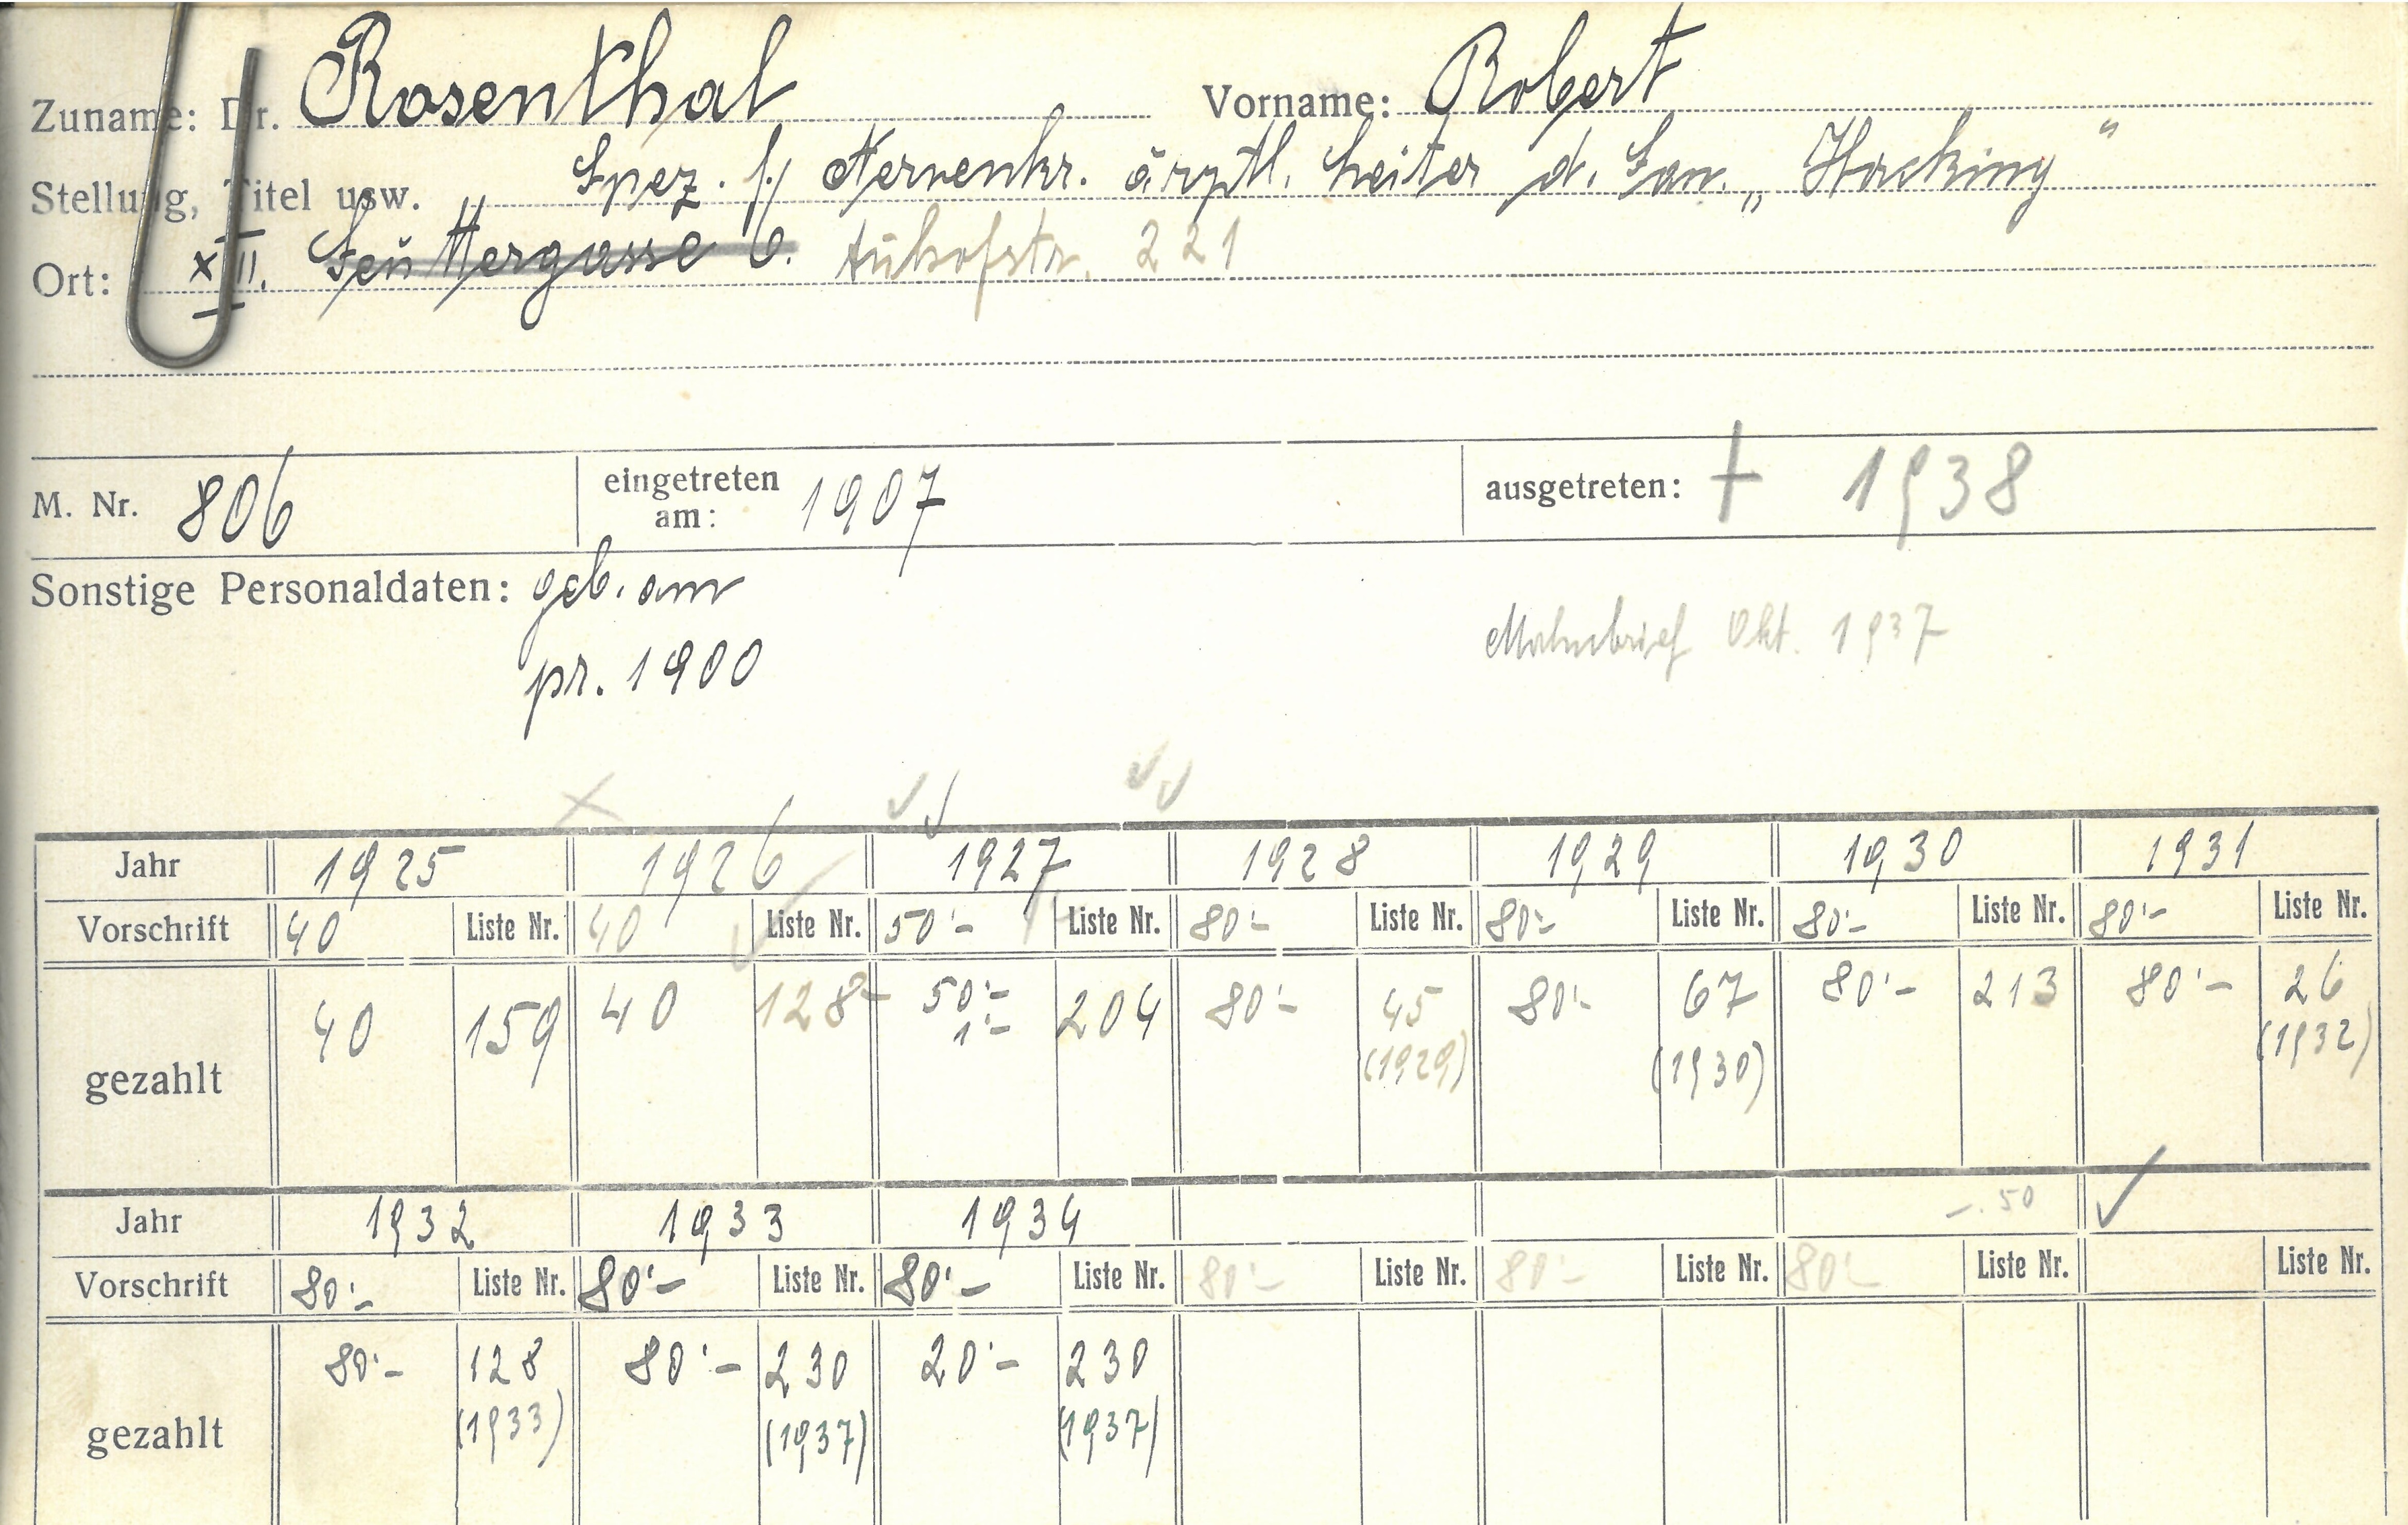 Zuname: Dr. Rosenthal Vorname: Robert
Stellung, Titel usw. Spez. f. Nervenkr. ärztl. Leiter d. San. „Hacking"
Ort: XIII. Feuttergasse 6. Auhofstr. 221
M. Nr. 806 eingetreten am: 1907 ausgetreten: † 1938
Sonstige Personaldaten: geb. am
Mahnbrief Okt. 1937
pr. 1900
Jahr 1925 1926 1927 1928 1929 1930 1931
Vorschrift 40 Liste Nr. 40 Liste Nr. 50'- Liste Nr. 80'- Liste Nr. 80'- Liste Nr. 80'- Liste Nr. 80'- Liste Nr.
gezahlt 40 159 40 128 50'- 204 80'- 45 80'- 67 80'- 213 80'- 26
1'- (1929) (1930) (1932)
-.50
Jahr 1932 1933 1934
Vorschrift 80'- Liste Nr. 80'- Liste Nr. 80'- Liste Nr. 80'- Liste Nr. 80'- Liste Nr. 80'- Liste Nr. Liste Nr.
gezahlt 80'- 128 80'- 230 20'- 230
(1933) (1937) (1937)